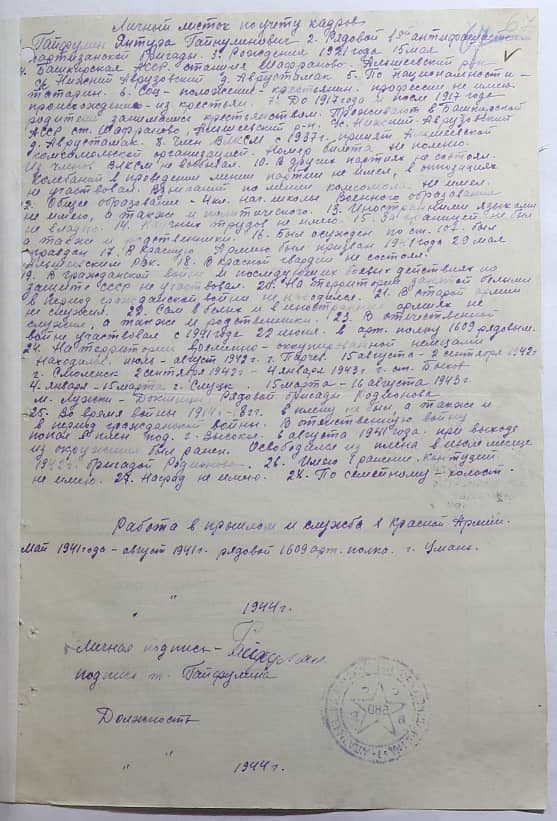 Личный листок по учету кадров
67
Гайфулин Янтура Гайнулинович 2. Рядовой 1ой антифашистской
партизанской бригады. 3. Рождения 1921 года 15 мая
4. Башкирская АССР станция Шафраново. Альшеевский р-он
с/с Нижний Аврузовский д. Аврусталмак 5. По национальности -
татарин. 6. Соц - положение - крестьянин. профессии не имею
происхождение - из крестьян. 7. До 1917 года и после 1917 года
родители занимались крестьянством. Проживают в Башкирской
АССР ст. Шафраново, Альшеевский р-н. с/с Нижний Аврузовский
д. Аврусталмак. 8. Член ВЛКСМ с 1937 г. принят Альшеевской
комсомольской организацией. Номер билета не помню.
Из членов ВЛКСМ не выбывал. 10. В других партиях не состоял.
Колебаний в проведении линии партии не имел, в оппозициях
не участвовал. Взысканий по линии комсомола не имел.
12. Общее образование - 4 кл. нач. школы Военного образования
не имею, а также и политического. 13. Иностранными языками
не владею. 14. Научных трудов не имею. 15. За границей не был
а также и родственники. 16. Был осужден по ст. 107. был
оправдан 17. В Красную Армию был призван 1941 года 29 мая
Альшеевским РВК. 18. В Красной гвардии не состоял.
19. В гражданской войне и последующих боевых действиях по
защите СССР не участвовал. 20. На территории занятой белыми
в период гражданской войны не находился. 21. В старой армии
не служил. 22. Сам в белых и в иностранных армиях не
служил, а также и родственники. 23. В отечественной
войне участвовал с 1941 года 22 июня. в арт. полку 1609 рядовым.
24. На территории временно-оккупированной немцами
находился: июль - август 1942 г. г. 15 августа - 2 сентября 1942 г
г. Смоленск 2 сентября 1942 г - 4 января 1943 г. ст. Быхов
4 января - 15 марта г. Слуцк. 15 марта - 16 августа 1943 г
м. Лужки - Докшицы Рядовой бригады Родионова
25. Во время войны 1914 - 18 гг. в плену не был, а также и
в период гражданской войны. В отечественную войну
попал в плен под. г. 8 августа 1941 года. при выходе
из окружения был ранен. Освободился из плена в июле месяце
1942 г. бригадой Родионова. 26. Имею 1 ранение. Контузий
не имею. 27. Наград не имею. 28. По семейному - холост.
Работа в прошлом и служба в Красной Армии.
Май 1941 года - август 1941 г. рядовой 1609 арт. полка. г. Умань.
" " 1944 г.
Личная подпись -
подпись т. Гайфулина
Должность
" " 1944 г.